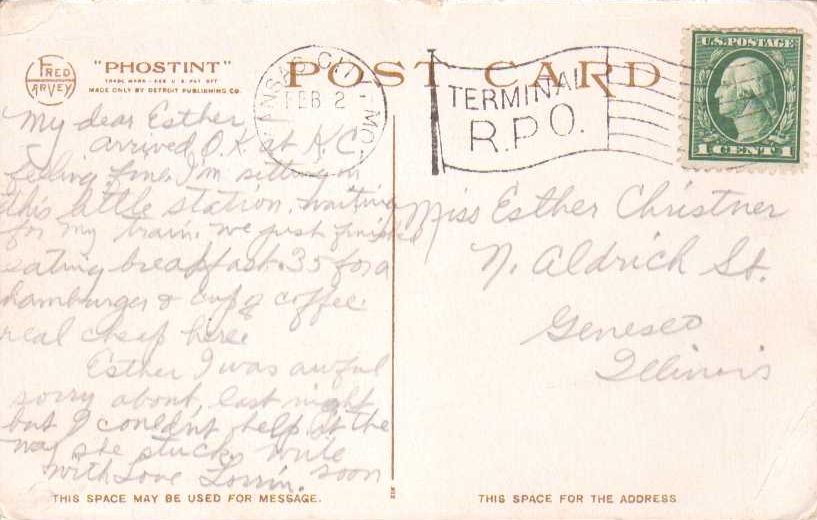 FRED HARVEY
"PHOSTINT"
TRADE MARK-REG U.S. PAT OFF
MADE ONLY BY DETROIT PUBLISHING CO.
POST CARD
KANSAS CITY MO.
FEB 2
TERMINAL
R.P.O.
U.S. POSTAGE
1 CENT 1
My dear Esther
arrived O.K at K.C.
feeling fine. I'm sitting in
this little station. waiting
for my train. we just finished
eating breakfast. 35 for a
hamburger & cup of coffee
real cheap here.
Esther I was awful
sorry about, last night
but I couldn't help it the
way she stuck. write
soon
With Love Lorrin.
Miss Esther Christner
N. Aldrich St.
Geneseo
Illinois
THIS SPACE MAY BE USED FOR MESSAGE.
THIS SPACE FOR THE ADDRESS